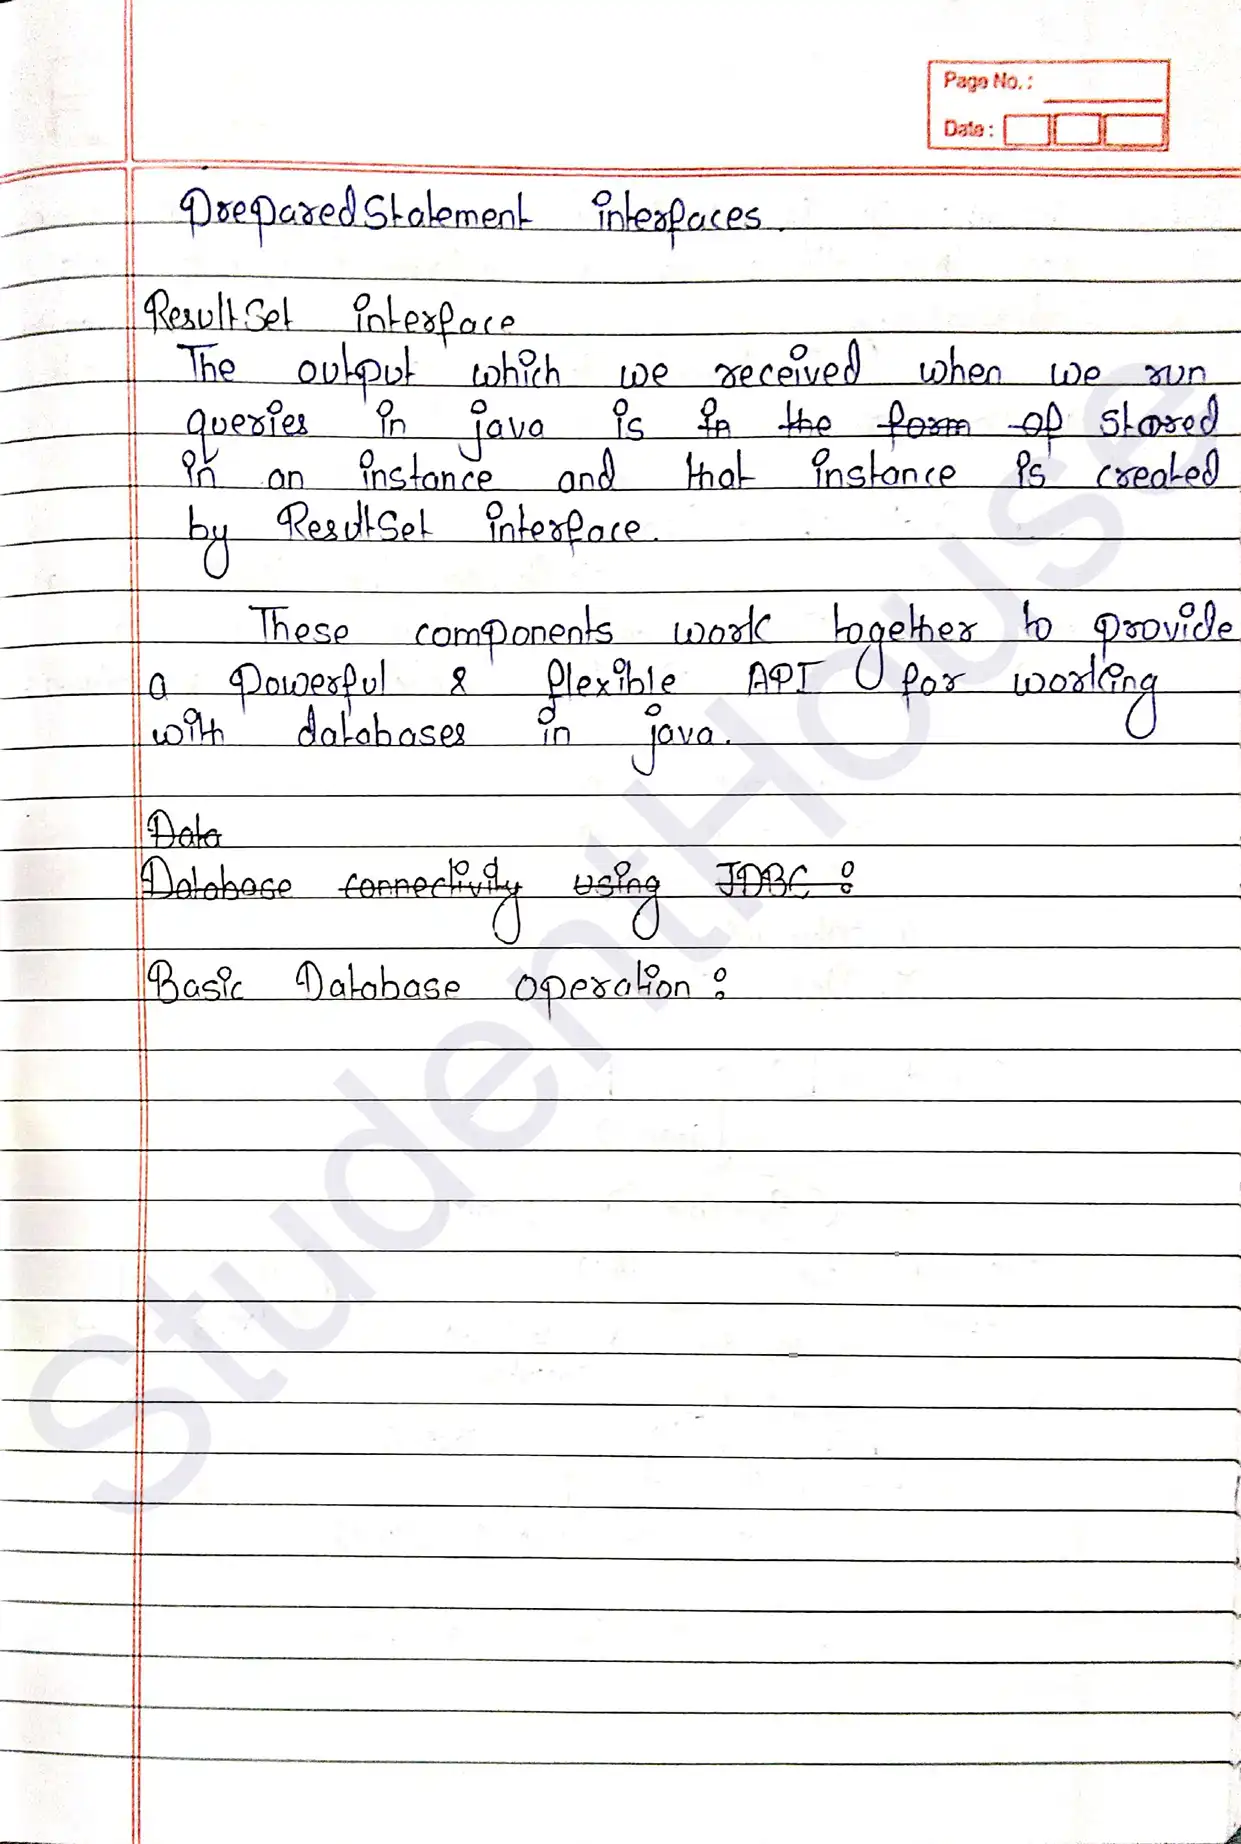 Page No. :
Date :
PreparedStatement interfaces.
ResultSet interface
The output which we received when we run
queries in java is in the form of stored
in an instance and that instance is created
by ResultSet interface.
These components work together to provide
a powerful & flexible API for working
with databases in java.
Data
Database connectivity using JDBC :
Basic Database operation :
StudentHouse